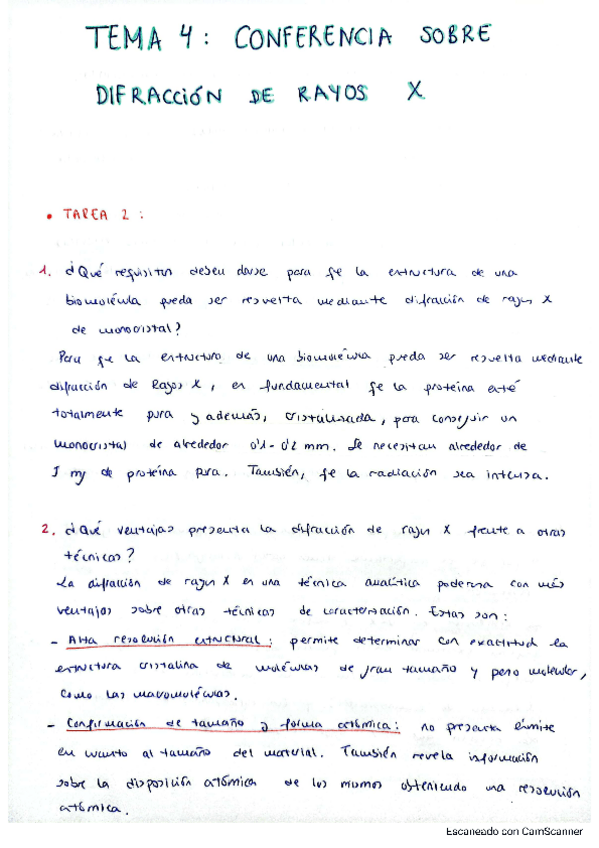 TEMA 4: CONFERENCIA SOBRE
DIFRACCIÓN DE RAYOS X
• TAREA 2:
1. ¿Qué requisitos deben darse para qe la estructura de una
biomolécula pueda ser resuelta mediante difracción de rayos X
de monocristal?
Para qe la estructura de una biomolécula pueda ser resuelta mediante
difracción de Rayos X, es fundamental qe la proteina esté
totalmente pura y además, cristalizada, para conseguir un
monocristal de alrededor 0'1-0'2 mm. Se necesitan alrededor de
5 mg de proteína pura. También, qe la radiación sea intensa.
2. ¿Qué ventajas presenta la difracción de rayos X frente a otras
técnicas?
La difracción de rayos X es una técnica analítica poderosa con más
ventajas sobre otras técnicas de caracterización. Estas son:
- Alta resolución estructural: permite determinar con exactitud la
estructura cristalina de moléculas de gran tamaño y peso molecular,
como las macromoléculas.
- Confirmación de tamaño y forma atómica: no presenta límite
en cuanto al tamaño del material. También revela información
sobre la disposición atómica de los mismos obteniendo una resolución
atómica.
Escaneado con CamScanner